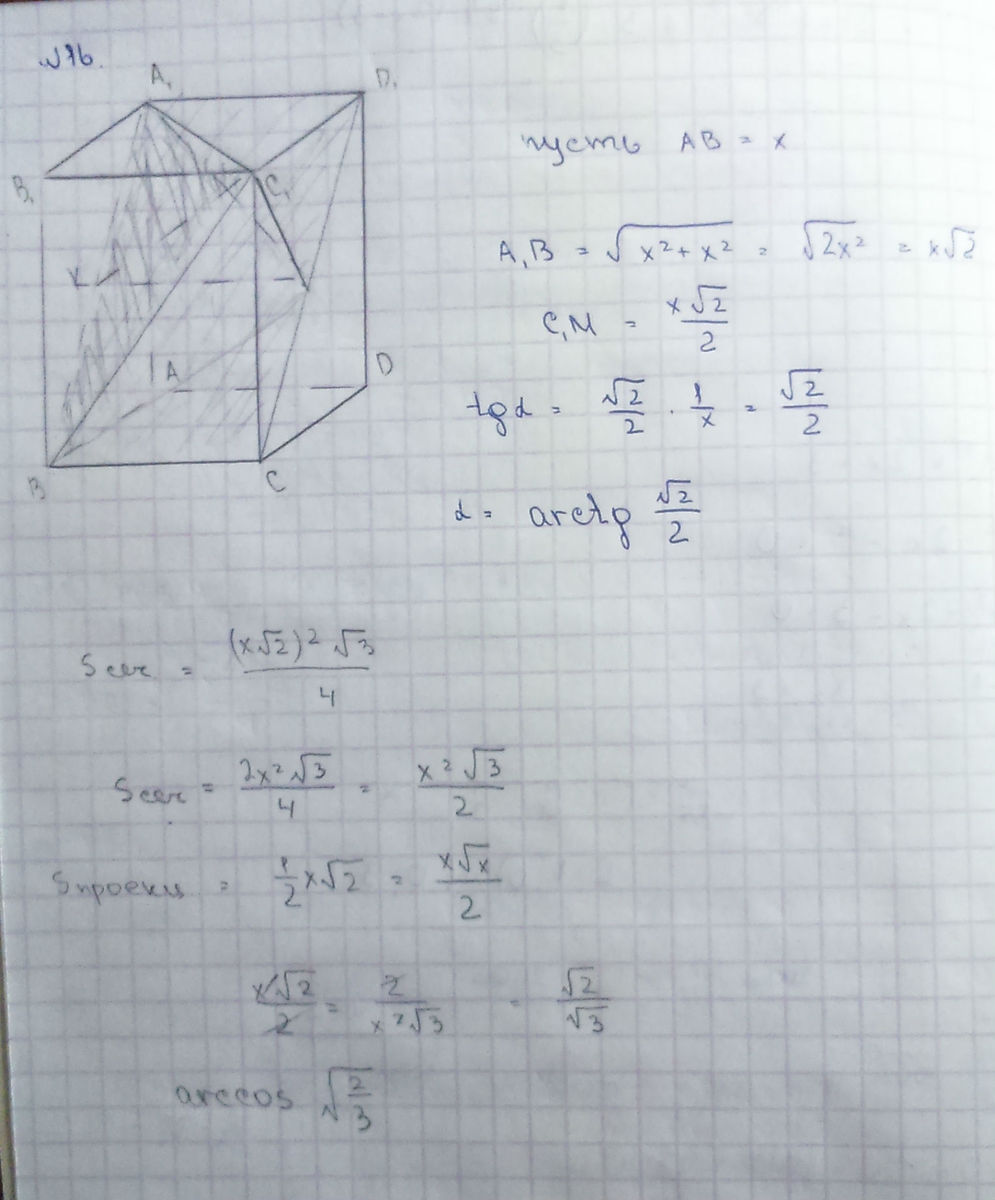 №16.
A₁ D₁
B₁ C₁
K
A D
B C
пусть AB = x
A₁B = √(x² + x²) = √(2x²) = x√2
C₁M = x√2/2
tgα = √2/2 · 1/x = √2/2
α = arctg √2/2
Sсеч = (x√2)² √3 / 4
Sсеч = 2x²√3/4 = x²√3/2
Sпроекц = 1/2 x√2 = x√x/2
x√2/2 = 2/x²√3 = √2/√3
arccos √(2/3)